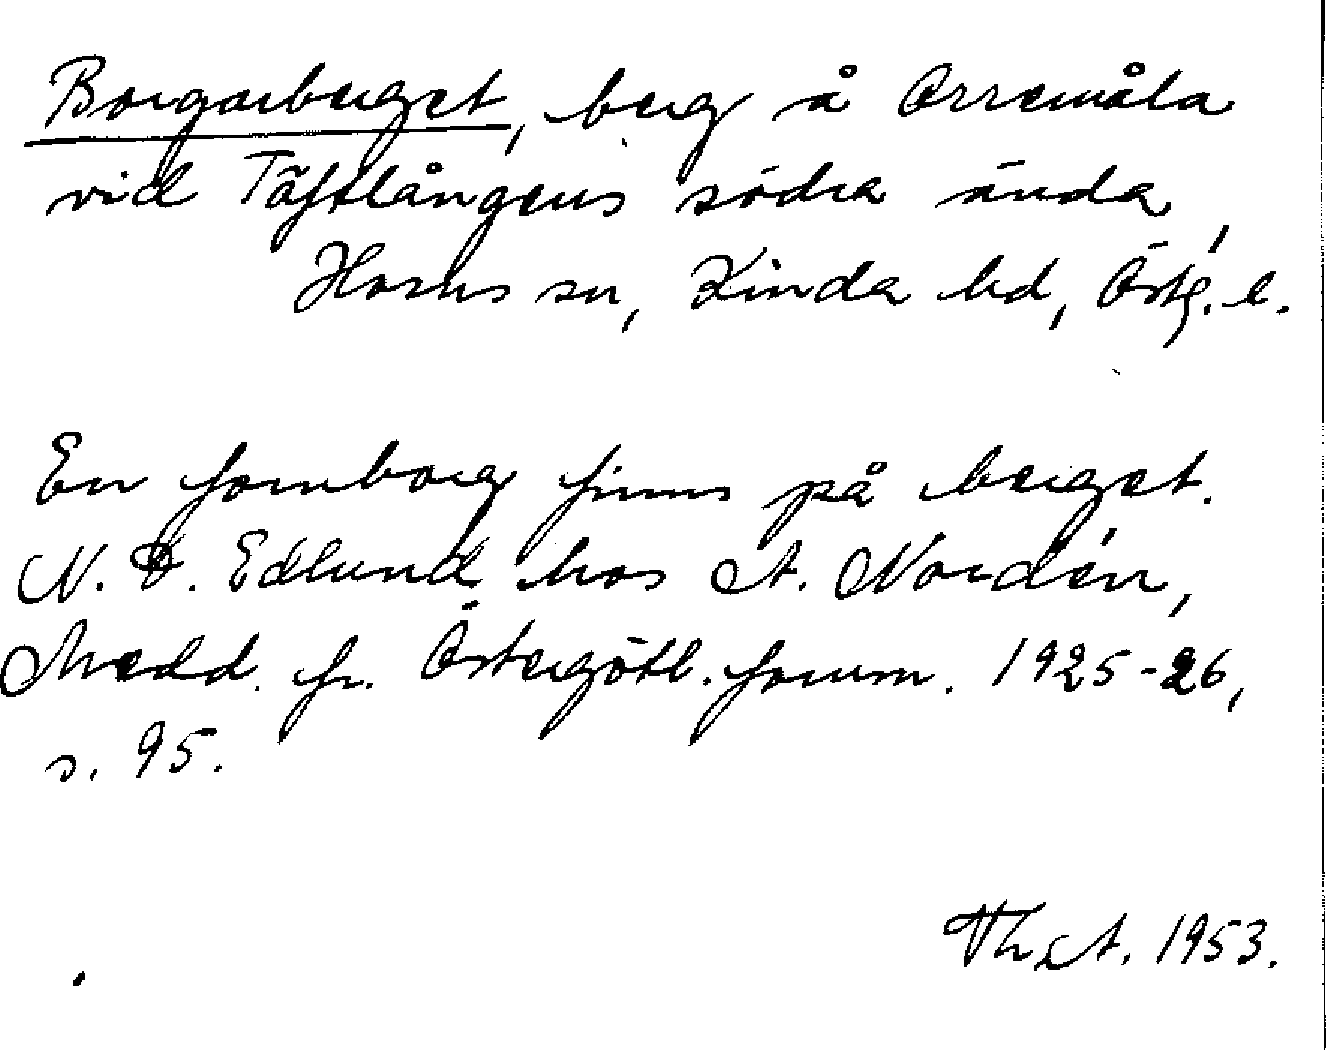 Borgarberget, berg å Orremåla
vid Täftlångens södra ända,
Horns sn, Kinda hd, Östg. l.
En fornborg finns på berget.
N. D. Edlund hos A. Nordén,
Medd. fr. Östergötl. fornm. 1925-26,
s. 95.
Th. A. 1953.